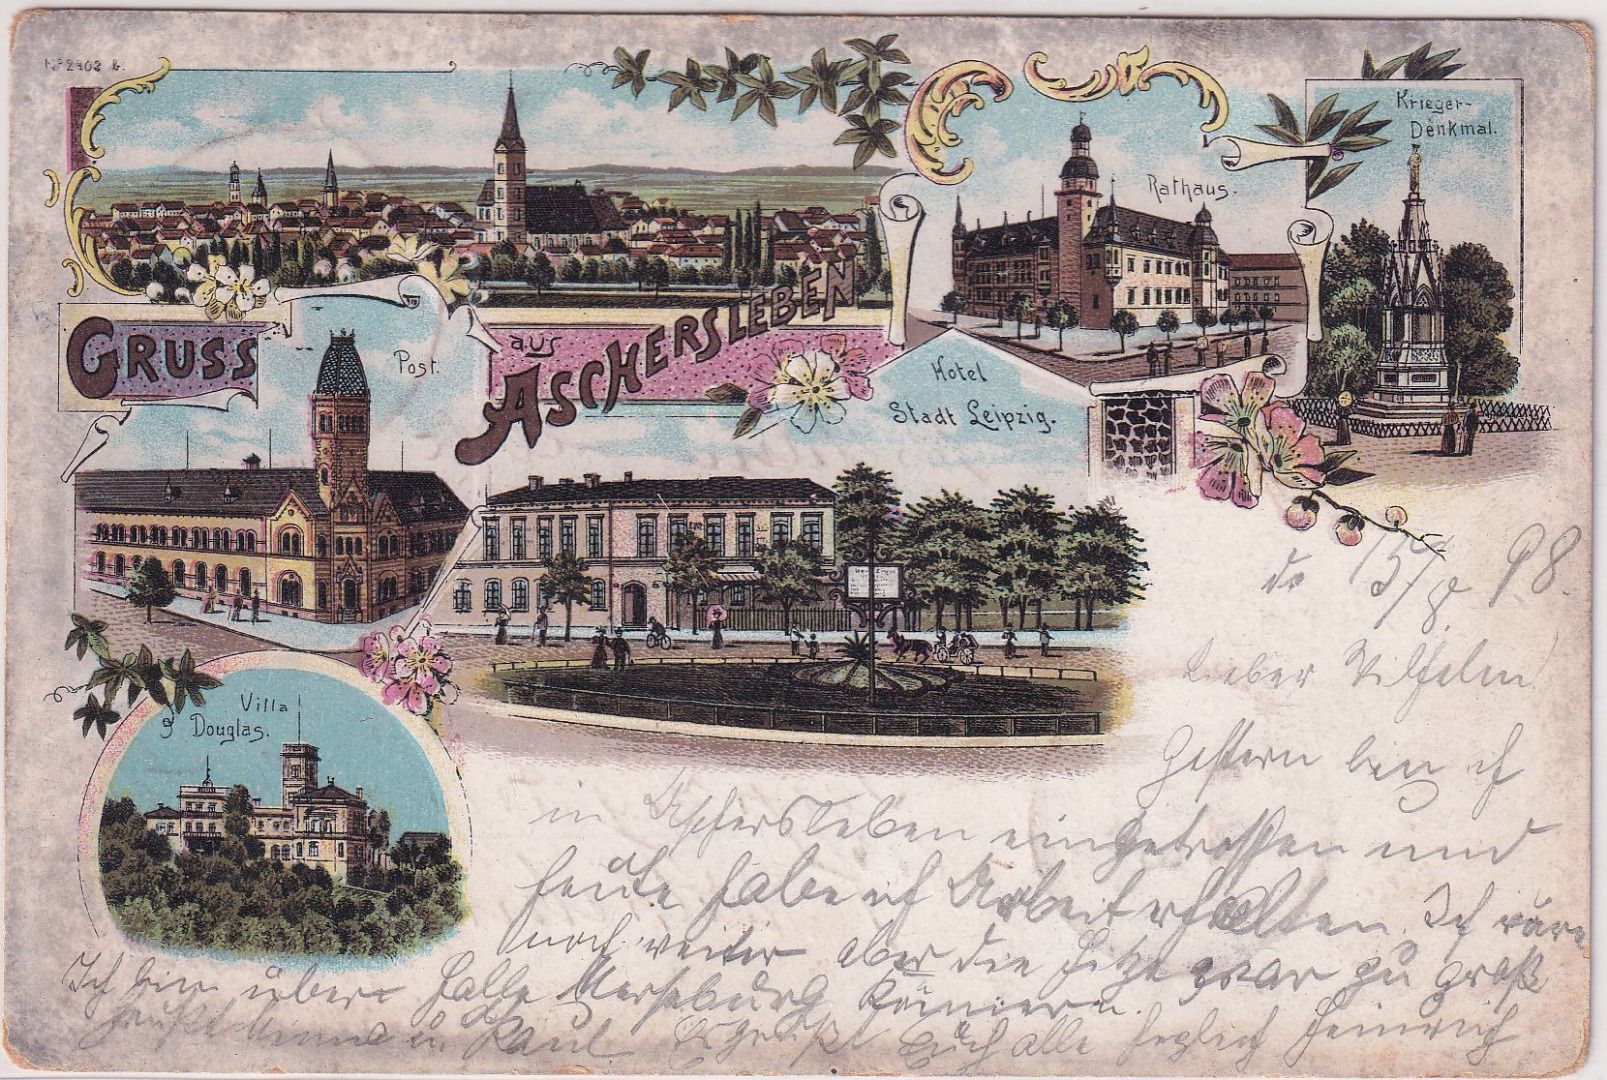 No 2402 b.
Krieger-
Denkmal.
Rathaus.
GRUSS
aus
ASCHERSLEBEN
Post.
Hotel
Stadt Leipzig.
Villa
Douglas.
15/8 98.
Lieber Wilhelm
Gestern bin ich
in Aschersleben eingetroffen und
heute habe ich Arbeit erhalten. Ich wäre
noch weiter aber die Hitze war zu groß
Ich bin über Halle Merseburg
u. Paul. Es grüßt Euch alle herzlich Heinrich